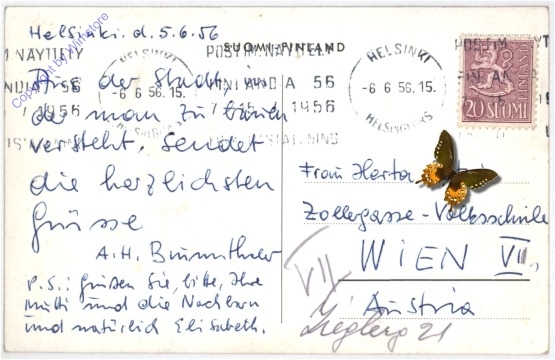 Helsinki d. 5.6.56
SUOMI-FINLAND
Aus der Stadt in
der man zu bauen
versteht, sendet
die herzlichsten
Grüsse
P.S.: Grüßen Sie, bitte, Ihre
Mutti und die Nachbarn
und natürlich Elisabeth.
HELSINKI
-6 6 56.15.
HELSINGFORS
POSTIM.NÄYTTELY
FINLANDIA 56
7-15 1956
HELSINKI
-6 6 56.15.
HELSINGFORS
20 SUOMI
Frau Herta
Zollergasse-Volksschule
WIEN VII.
Austria
VII
Zieglerg 21
Copyright by Wilnetore